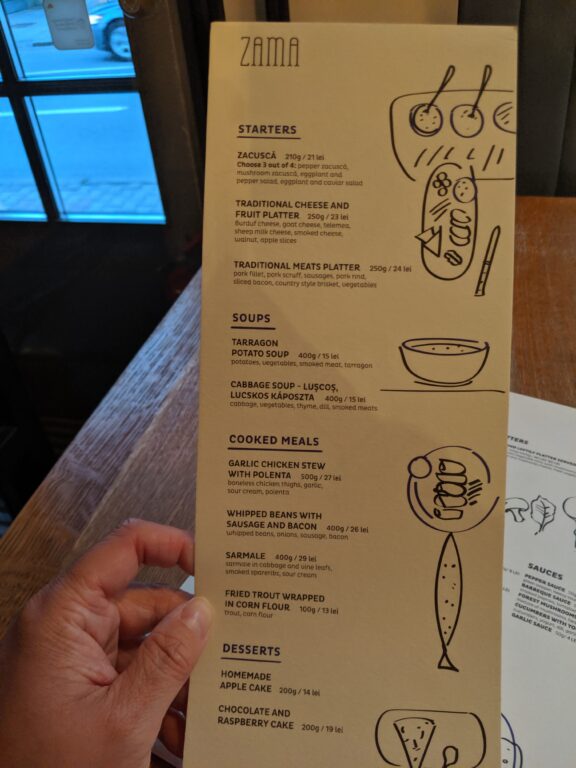 ZAMA
STARTERS
ZACUSCĂ 210g / 21 lei
Choose 3 out of 4: pepper zacuscă,
mushroom zacuscă, eggplant and
pepper salad, eggplant and caviar salad
TRADITIONAL CHEESE AND
FRUIT PLATTER 250g / 23 lei
Burduf cheese, goat cheese, telemea,
sheep milk cheese, smoked cheese,
walnut, apple slices
TRADITIONAL MEATS PLATTER 250g / 24 lei
pork fillet, pork scruff, sausages, pork rind,
sliced bacon, country style brisket, vegetables
SOUPS
TARRAGON
POTATO SOUP 400g / 15 lei
potatoes, vegetables, smoked meat, tarragon
CABBAGE SOUP - LUȘCOȘ,
LUCSKOS KÁPOSZTA 400g / 15 lei
cabbage, vegetables, thyme, dill, smoked meats
COOKED MEALS
GARLIC CHICKEN STEW
WITH POLENTA 500g / 27 lei
boneless chicken thighs, garlic,
sour cream, polenta
WHIPPED BEANS WITH
SAUSAGE AND BACON 400g / 26 lei
whipped beans, onions, sausage, bacon
SARMALE 400g / 29 lei
sarmale in cabbage and vine leafs,
smoked spareribs, sour cream
FRIED TROUT WRAPPED
IN CORN FLOUR 100g / 13 lei
trout, corn flour
DESSERTS
HOMEMADE
APPLE CAKE 200g / 14 lei
CHOCOLATE AND
RASPBERRY CAKE 200g / 19 lei
SAUCES
PEPPER SAUCE
BARBEQUE SAUCE
FOREST MUSHROOMS
CUCUMBERS WITH
GARLIC SAUCE